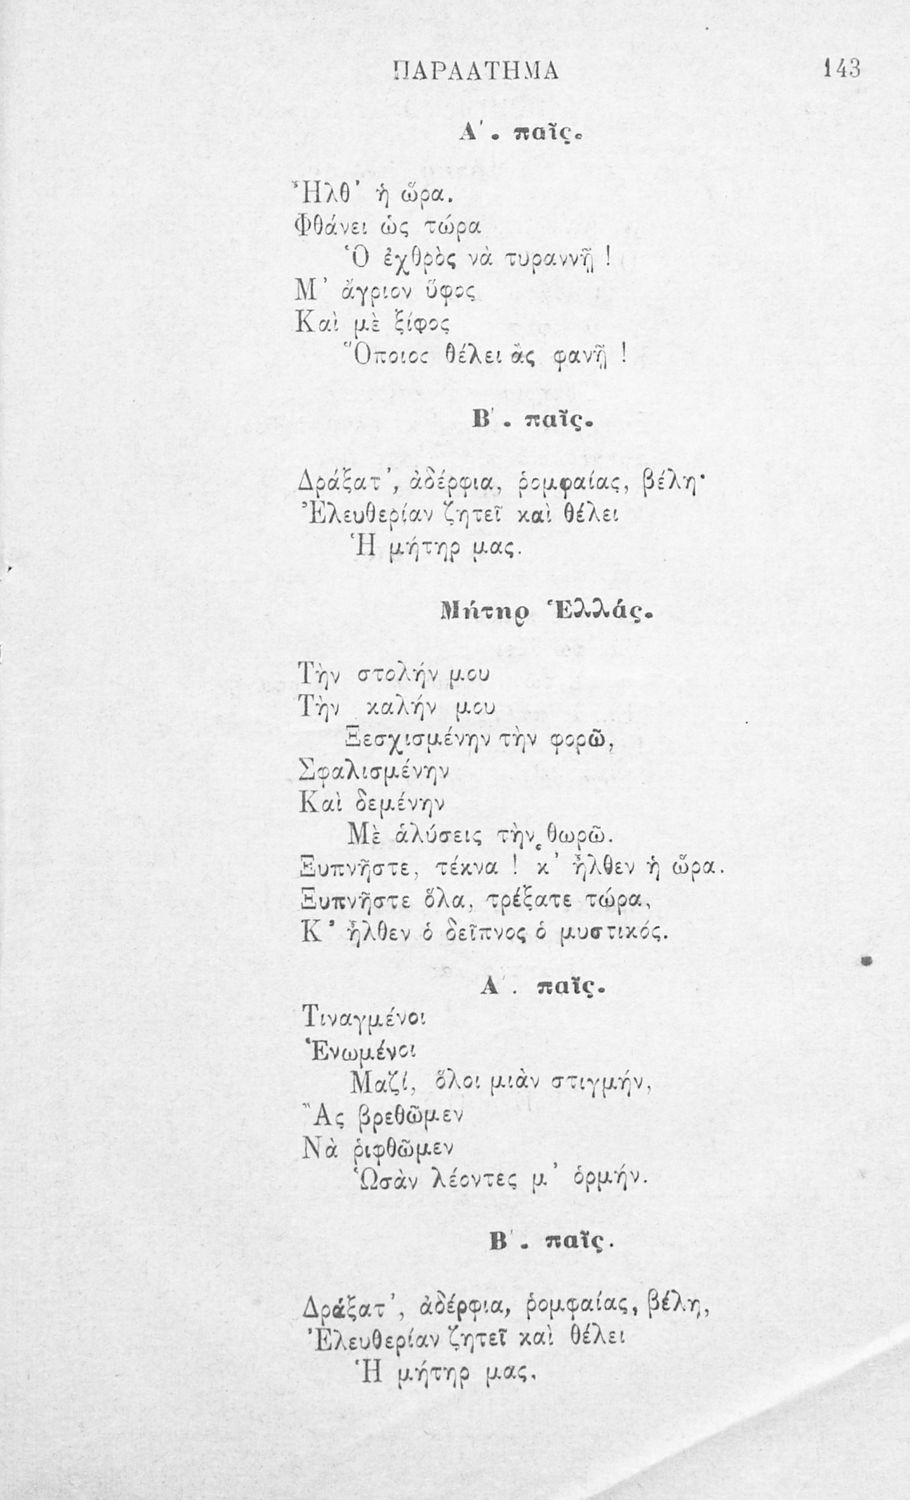 ΠΑΡΑΑΤΗΜΑ 143
Α΄. παῖς.
Ἦλθ’ ἡ ὥρα.
Φθάνει ὡς τώρα
Ὁ ἐχθρὸς νὰ τυραννῇ !
Μ’ ἄγριον ὕφος
Καὶ μὲ ξίφος
Ὅποιος θέλει ἂς φανῇ !
Β΄. παῖς.
Δράξατ’, ἀδέρφια, ῥομφαίας, βέλη·
Ἐλευθερίαν ζητεῖ καὶ θέλει
Ἡ μήτηρ μας.
Μήτηρ Ἑλλάς.
Τὴν στολήν μου
Τὴν καλήν μου
Ξεσχισμένην τὴν φορῶ,
Σφαλισμένην
Καὶ δεμένην
Μὲ ἁλύσεις τὴν θωρῶ.
Ξυπνῆστε, τέκνα ! κ’ ἦλθεν ἡ ὥρα.
Ξυπνῆστε ὅλα, τρέξατε τώρα,
Κ’ ἦλθεν ὁ δεῖπνος ὁ μυστικός.
Α΄. παῖς.
Τιναγμένοι
Ἑνωμένοι
Μαζί, ὅλοι μιὰν στιγμήν,
Ἂς βρεθῶμεν
Νὰ ῥιφθῶμεν
Ὡσὰν λέοντες μ’ ὁρμήν.
Β΄. παῖς.
Δράξατ’, ἀδέρφια, ῥομφαίας, βέλη,
Ἐλευθερίαν ζητεῖ καὶ θέλει
Ἡ μήτηρ μας.